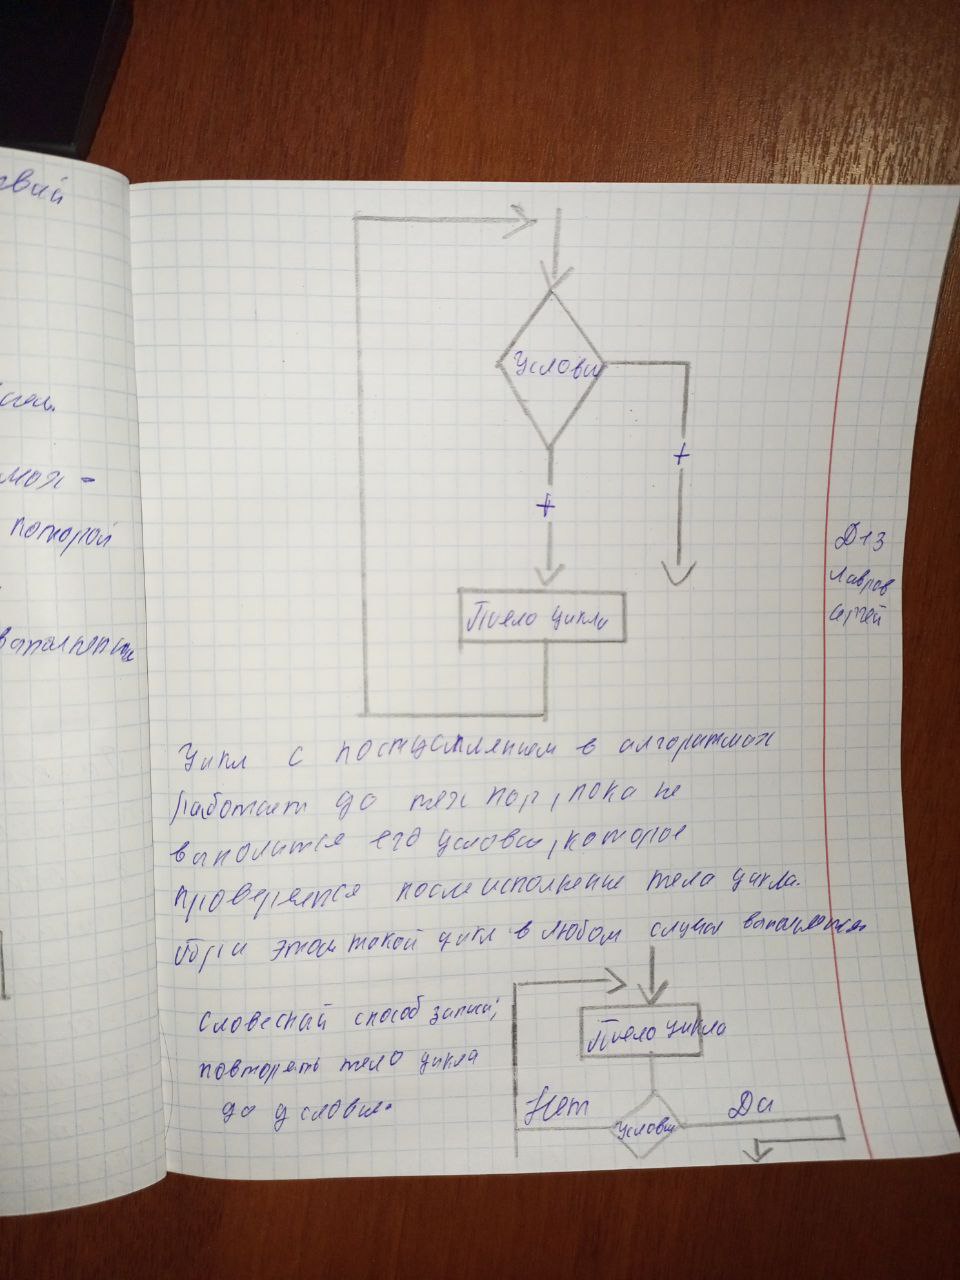 твий
мож -
которой
Услови
+
+
Д13
Лавров
ергей
Тело цикла
Цикл с постусловием в алгоритмах
работает до тех пор, пока не
выполнится его условие, которое
проверяется после исполнение тела цикла.
При этом такой цикл в любом случаи
Словесный способ записи;
повторять тело цикла
до условие.
Тело цикла
Нет
Услови
Да